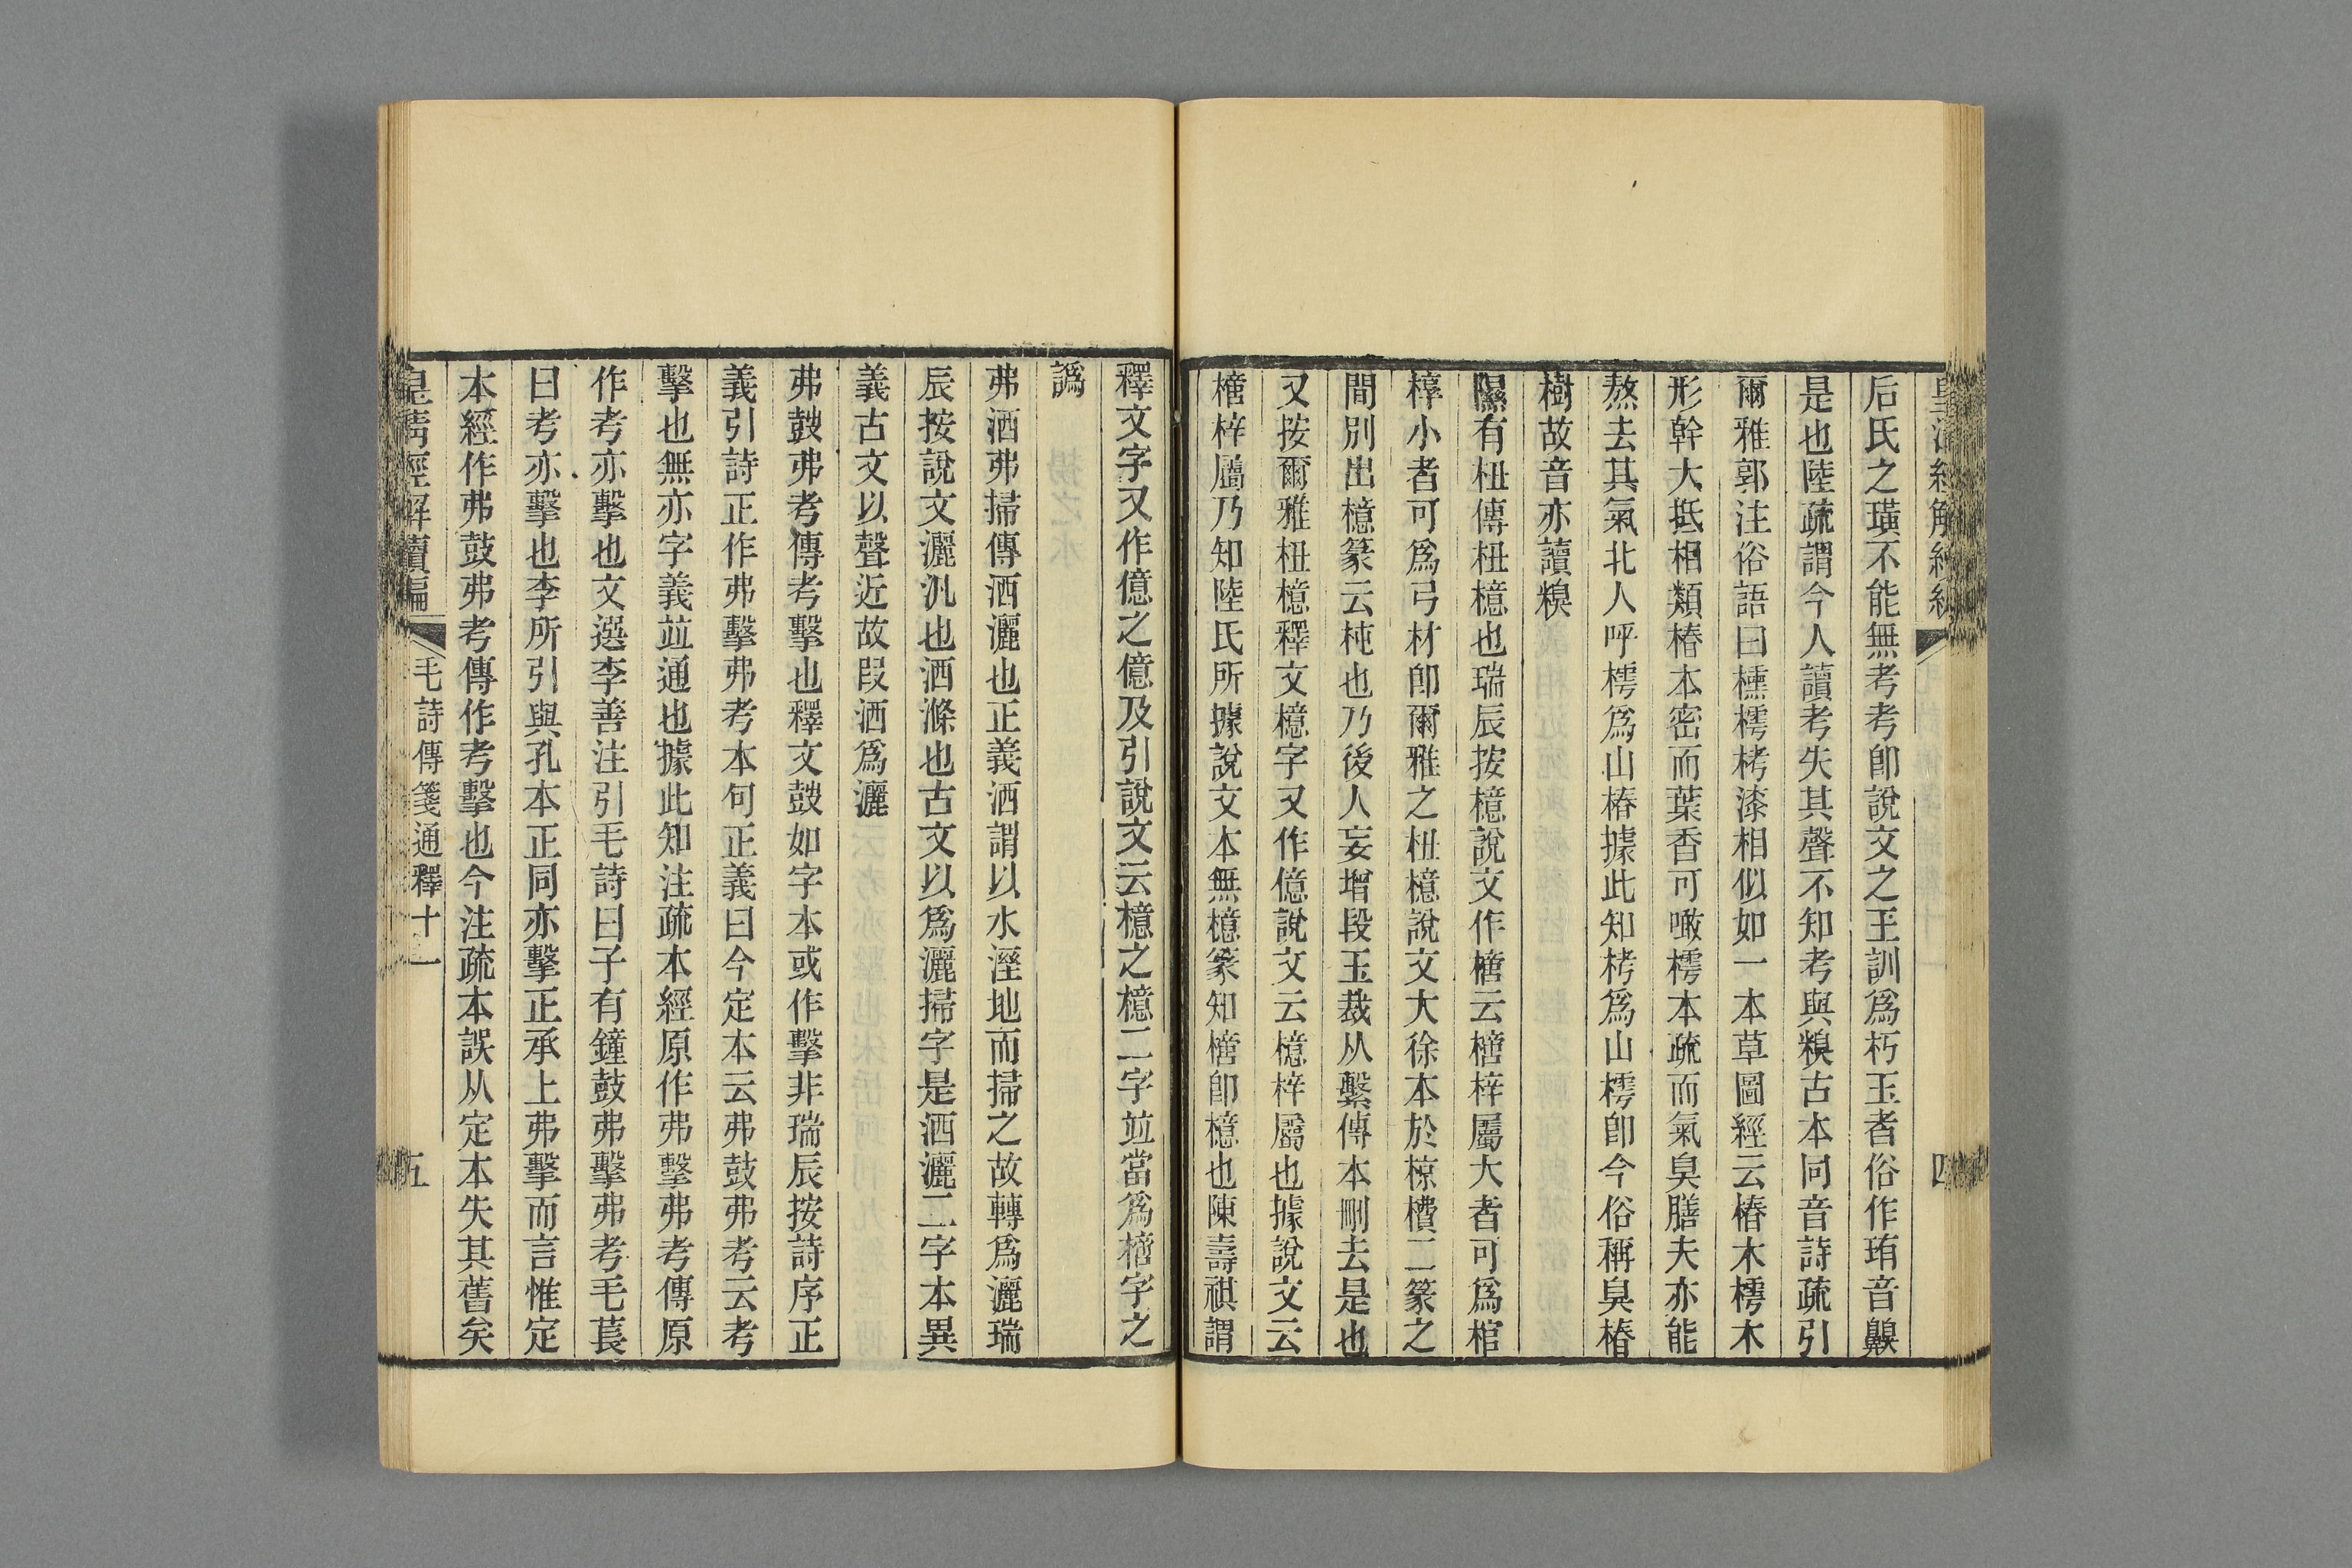 后氏之璜不能無考考卽說文之王訓爲朽玉者俗作珛音齅
是也陸疏謂今人讀考失其聲不知考與糗古本同音詩疏引
爾雅郭注俗語曰櫄樗栲漆相似如一本草圖經云椿木樗木
形幹大抵相類椿本密而葉香可噉樗本疏而氣臭膳夫亦能
熬去其氣北人呼樗爲山椿據此知栲爲山樗卽今俗稱臭椿
樹故音亦讀糗
隰有杻傳杻檍也瑞辰按檍說文作㯖云㯖梓屬大者可爲棺
椁小者可爲弓材卽爾雅之杻檍說文大徐本於椋橃二篆之
間別出檍篆云杶也乃後人妄增段玉裁从繫傳本刪去是也
又按爾雅杻檍釋文檍字又作億說文云檍梓屬也據說文云
㯖梓屬乃知陸氏所據說文本無檍篆知㯖卽檍也陳壽祺謂
釋文字又作億之億及引說文云檍之檍二字竝當爲㯖字之
譌
弗洒弗掃傳洒灑也正義洒謂以水溼地而掃之故轉爲灑瑞
辰按說文灑汎也洒滌也古文以爲灑掃字是洒灑二字本異
義古文以聲近故叚洒爲灑
弗鼓弗考傳考擊也釋文鼓如字本或作擊非瑞辰按詩序正
義引詩正作弗擊弗考本句正義曰今定本云弗鼓弗考云考
擊也無亦字義竝通也據此知注疏本經原作弗擊弗考傳原
作考亦擊也文選李善注引毛詩曰子有鐘鼓弗擊弗考毛萇
曰考亦擊也李所引與孔本正同亦擊正承上弗擊而言惟定
本經作弗鼓弗考傳作考擊也今注疏本誤从定本失其舊矣
皇清經解續編
毛詩傳箋通釋十一
五